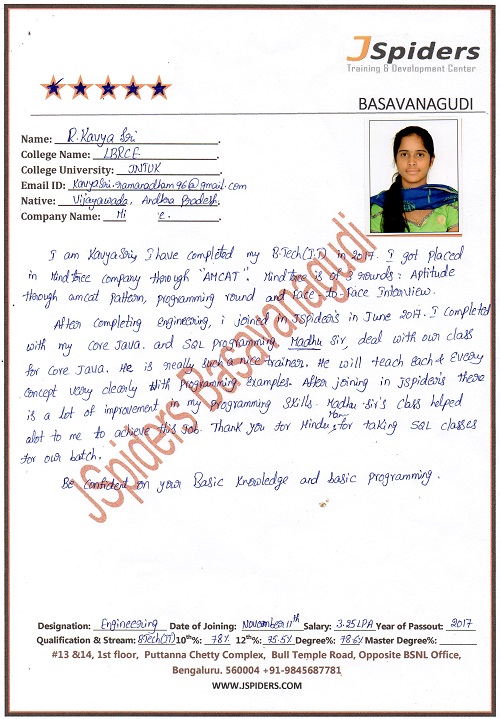 JSpiders
Training & Development Center
BASAVANAGUDI
Name: R. Kavya Sri
College Name: LBRCE
College University: JNTUK
Email ID: KavyaSri.ramanadham96@gmail.com
Native: Vijayawada, Andhra Pradesh.
Company Name: Mi e.
I am KavyaSri, I have completed my B.Tech(I.T) in 2017. I got placed
in Mindtree company thorough "AMCAT". Mindtree is of 3 rounds: Aptitude
through amcat Pattern, programming round and Face-to-Face Interview.
After completing engineering, i joined in JSpider's in June 2017. I completed
with my Core Java. and SQL programming. Madhu Sir, deal with our class
for Core Java. He is really such a nice trainer. He will teach each & Every
concept very clearly with Programming examples. After joining in JSpider's there
is a lot of improvement in my programming Skills. Madhu Sir's class helped
alot to me to achieve this Job. Thank you for Hindu Mam, for taking SQL classes
for our batch.
Be Confident on your Basic Knowledge and basic programming.
JSpiders Basavanagudi
Designation: Engineering Date of Joining: November 11th Salary: 3.25LPA Year of Passout: 2017
Qualification & Stream: B.Tech(IT) 10th%: 78% 12th%: 75.5% Degree%: 78.6% Master Degree%:
#13 &14, 1st floor, Puttanna Chetty Complex, Bull Temple Road, Opposite BSNL Office,
Bengaluru. 560004 +91-9845687781
WWW.JSPIDERS.COM